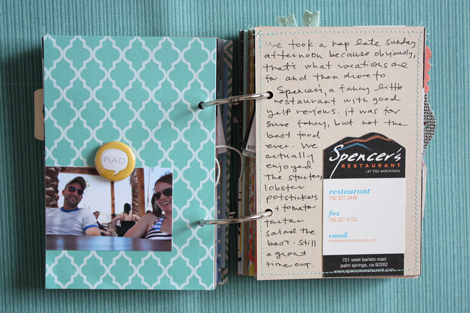 RAD
We took a nap late Sunday
afternoon because obviously,
that's what vacations are
for and then drove to
Spencer's, a fancy little
restaurant with good
yelp reviews. it was for
sure fancy, but not the
best food
ever. We
actually
enjoyed
the starters,
lobster
potstickers
+ tomato
tartar
salad the
best. Still
a great
time out.
Spencer's
RESTAURANT
...AT THE MOUNTAIN
restaurant
760 327 3446
fax
email
701 west baristo road
palm springs, ca 92262
www.spencersrestaurant.com